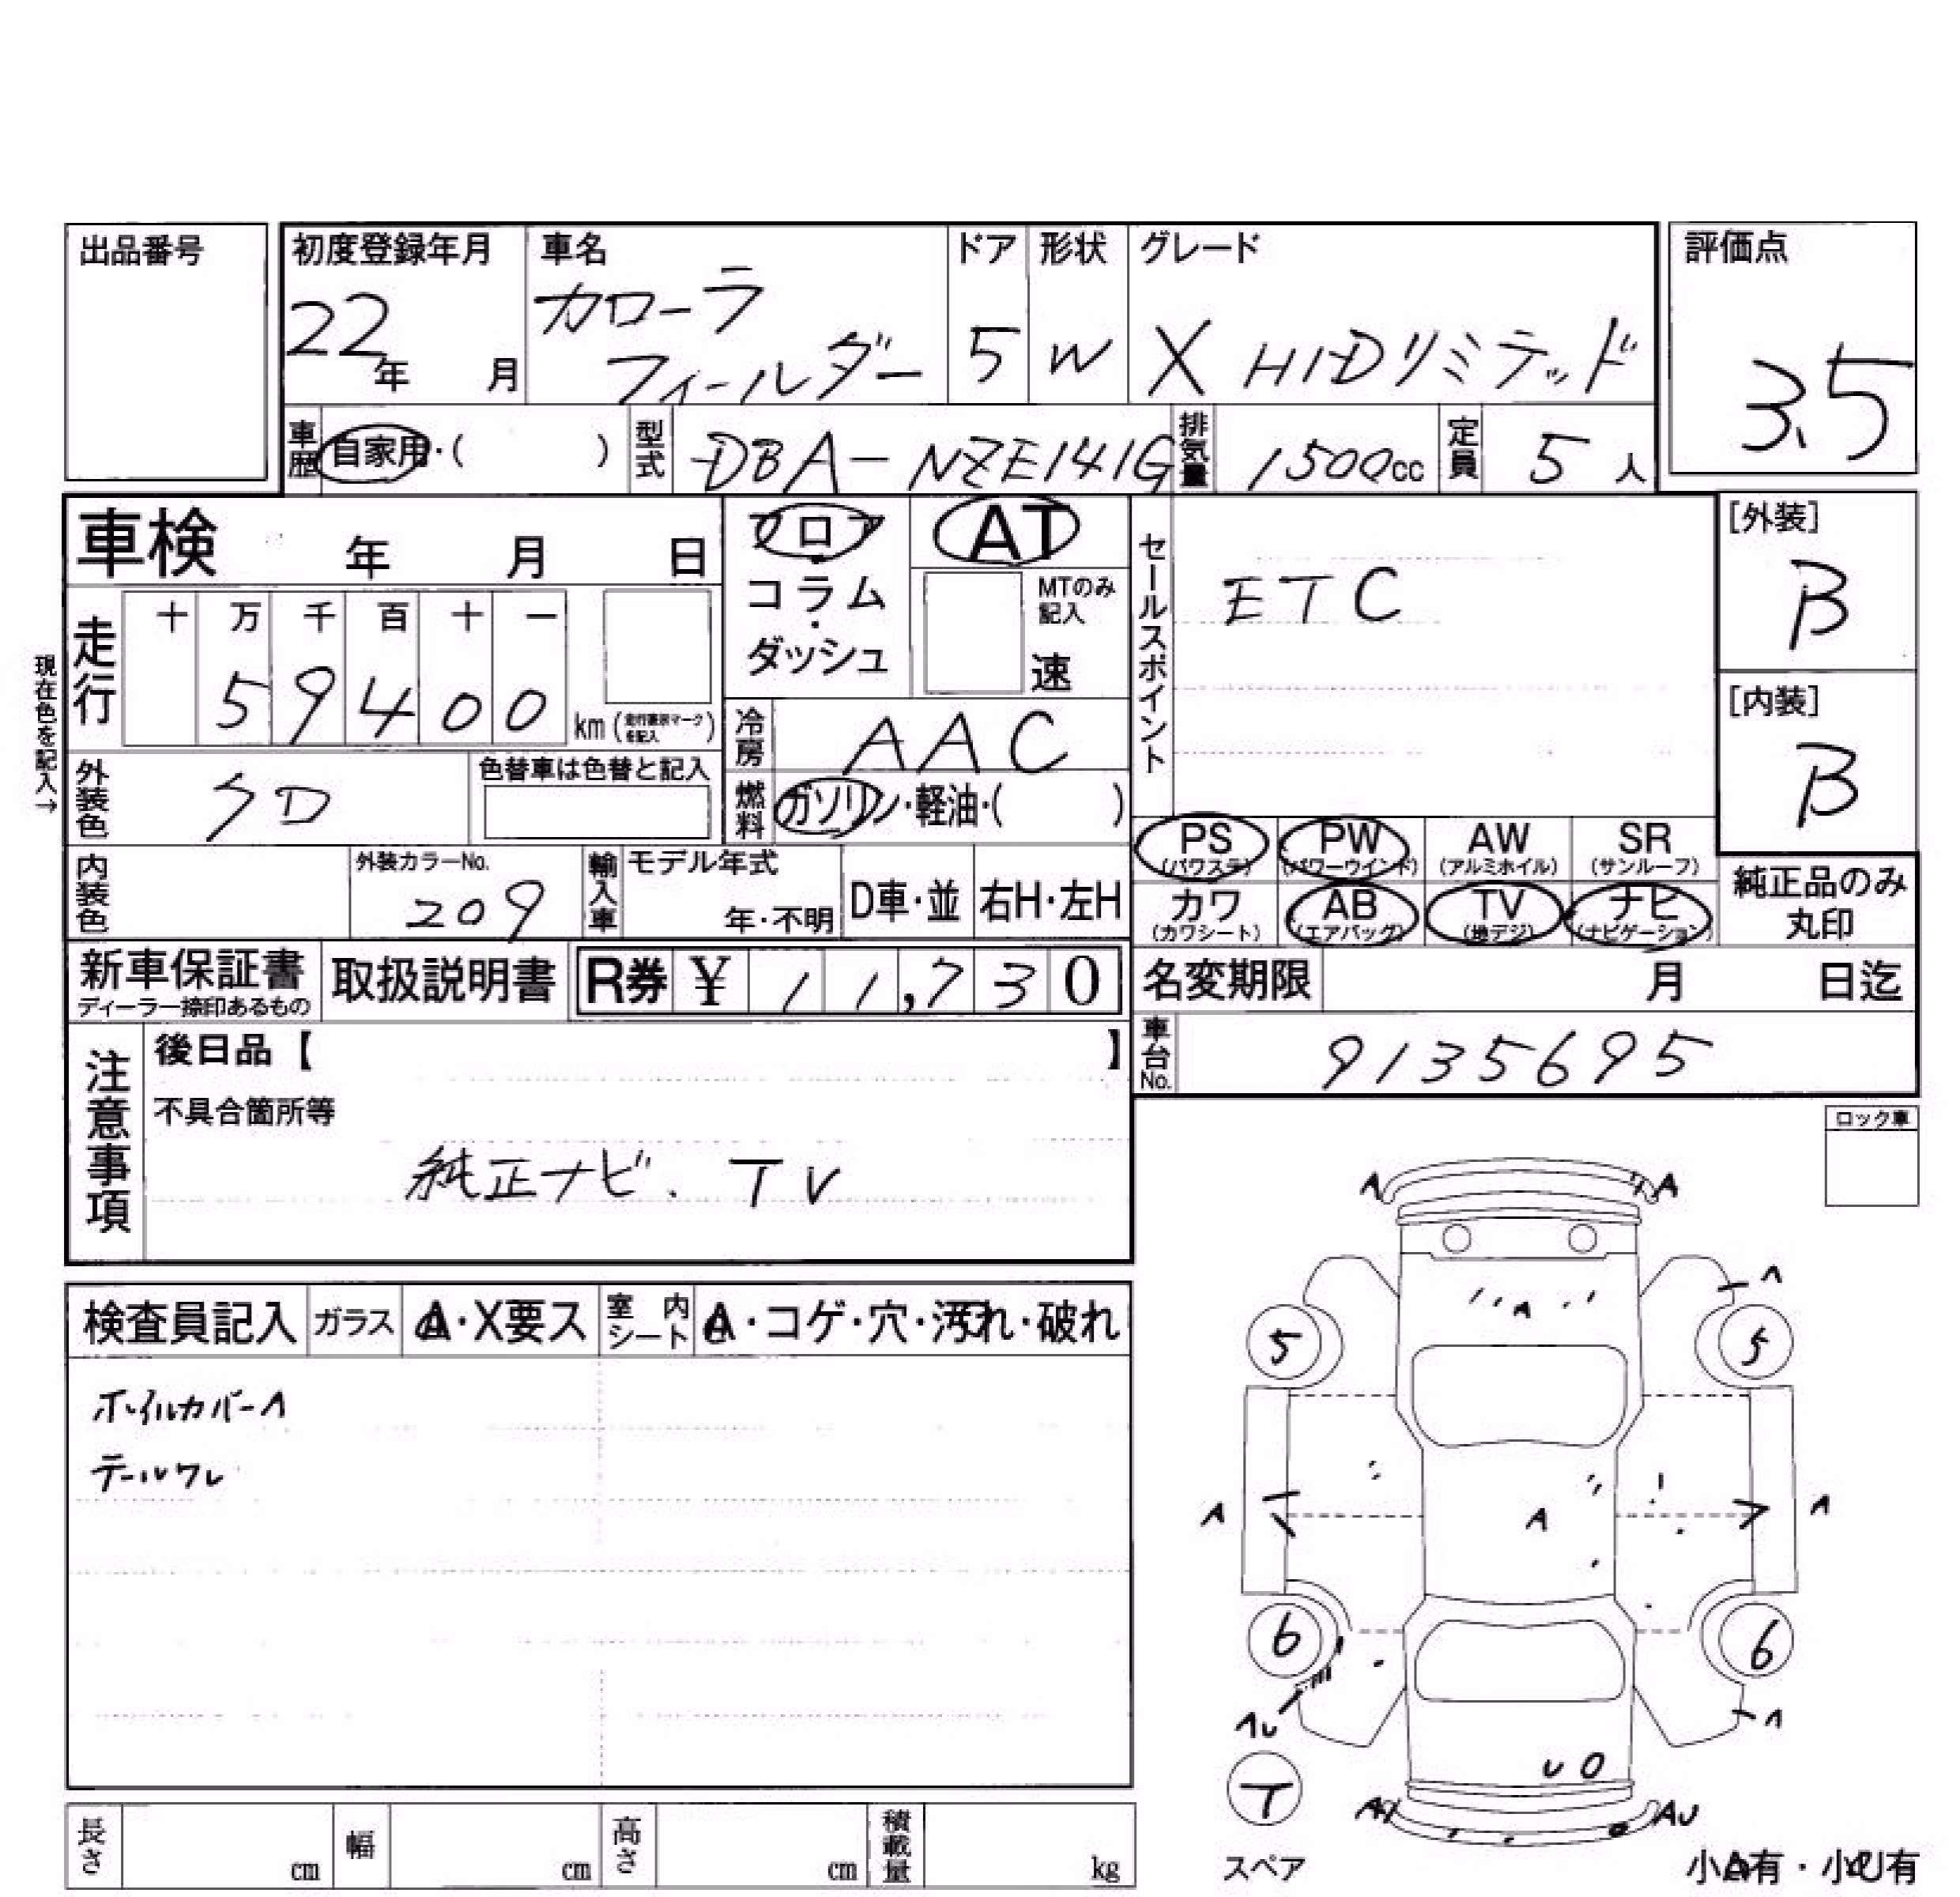 出品番号
初度登録年月 車名 ドア 形状 グレード 評価点
22年 月 カローラ
フィールダー 5 W X HIDリミテッド 3.5
車歴 自家用・( ) 型式 DBA-NZE141G 排気量 1500cc 定員 5人
車検 年 月 日
フロア
・
コラム
・
ダッシュ
AT
MTのみ
記入
速
セールスポイント ETC
[外装]
B
[内装]
B
現在色を記入→
走行 十 万 千 百 十 一
5 9 4 0 0 km (走行書示マークを記入)
冷房 AAC
外装色 SD 色替車は色替と記入
燃料 ガソリン・軽油・( )
PS (パワステ) PW (パワーウインド) AW (アルミホイル) SR (サンルーフ)
カワ (カワシート) AB (エアバッグ) TV (地デジ) ナビ (ナビゲーション)
純正品のみ
丸印
内装色 外装カラーNo. 209 輸入車 モデル年式 年・不明 D車・並 右H・左H
新車保証書
ディーラー捺印あるもの
取扱説明書 R券 ¥ 11,730 名変期限 月 日迄
車台No. 9135695
注意事項 後日品【 】
不具合箇所等
純正ナビ. TV
ロック車
検査員記入 ガラス A・X要ス 室内シート A・コゲ・穴・汚れ・破れ
ホイルカバーA
テールワレ
A A
A
A
5 5
A A A
6 6
AU A
U O
T
AU
スペア
小A有・小U有
長さ cm 幅 cm 高さ cm 積載量 kg